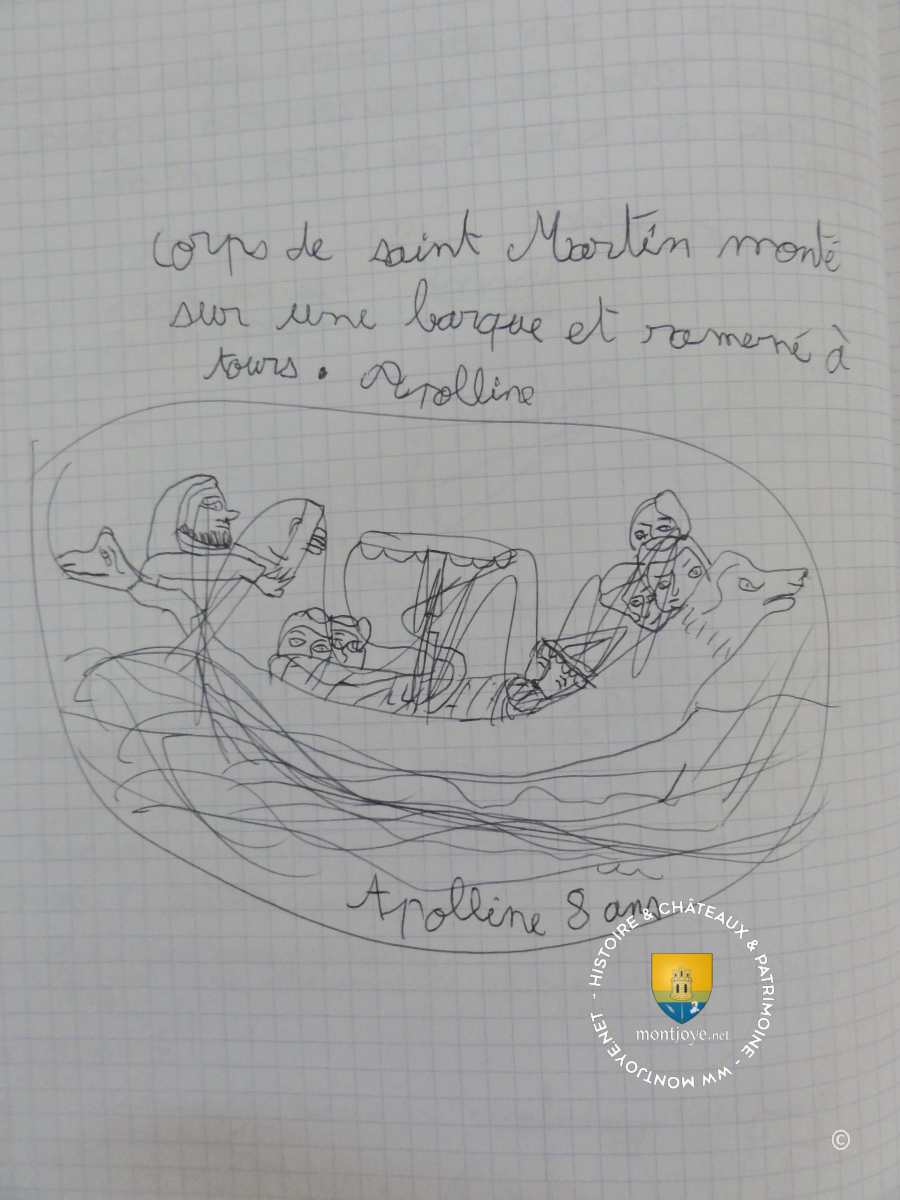 corps de saint Martin monté
sur une barque et ramené à
tours. Apolline
Apolline 8 ans
- HISTOIRE & CHÂTEAUX & PATRIMOINE - WW MONTJOYE.NET
montjoye.net
©